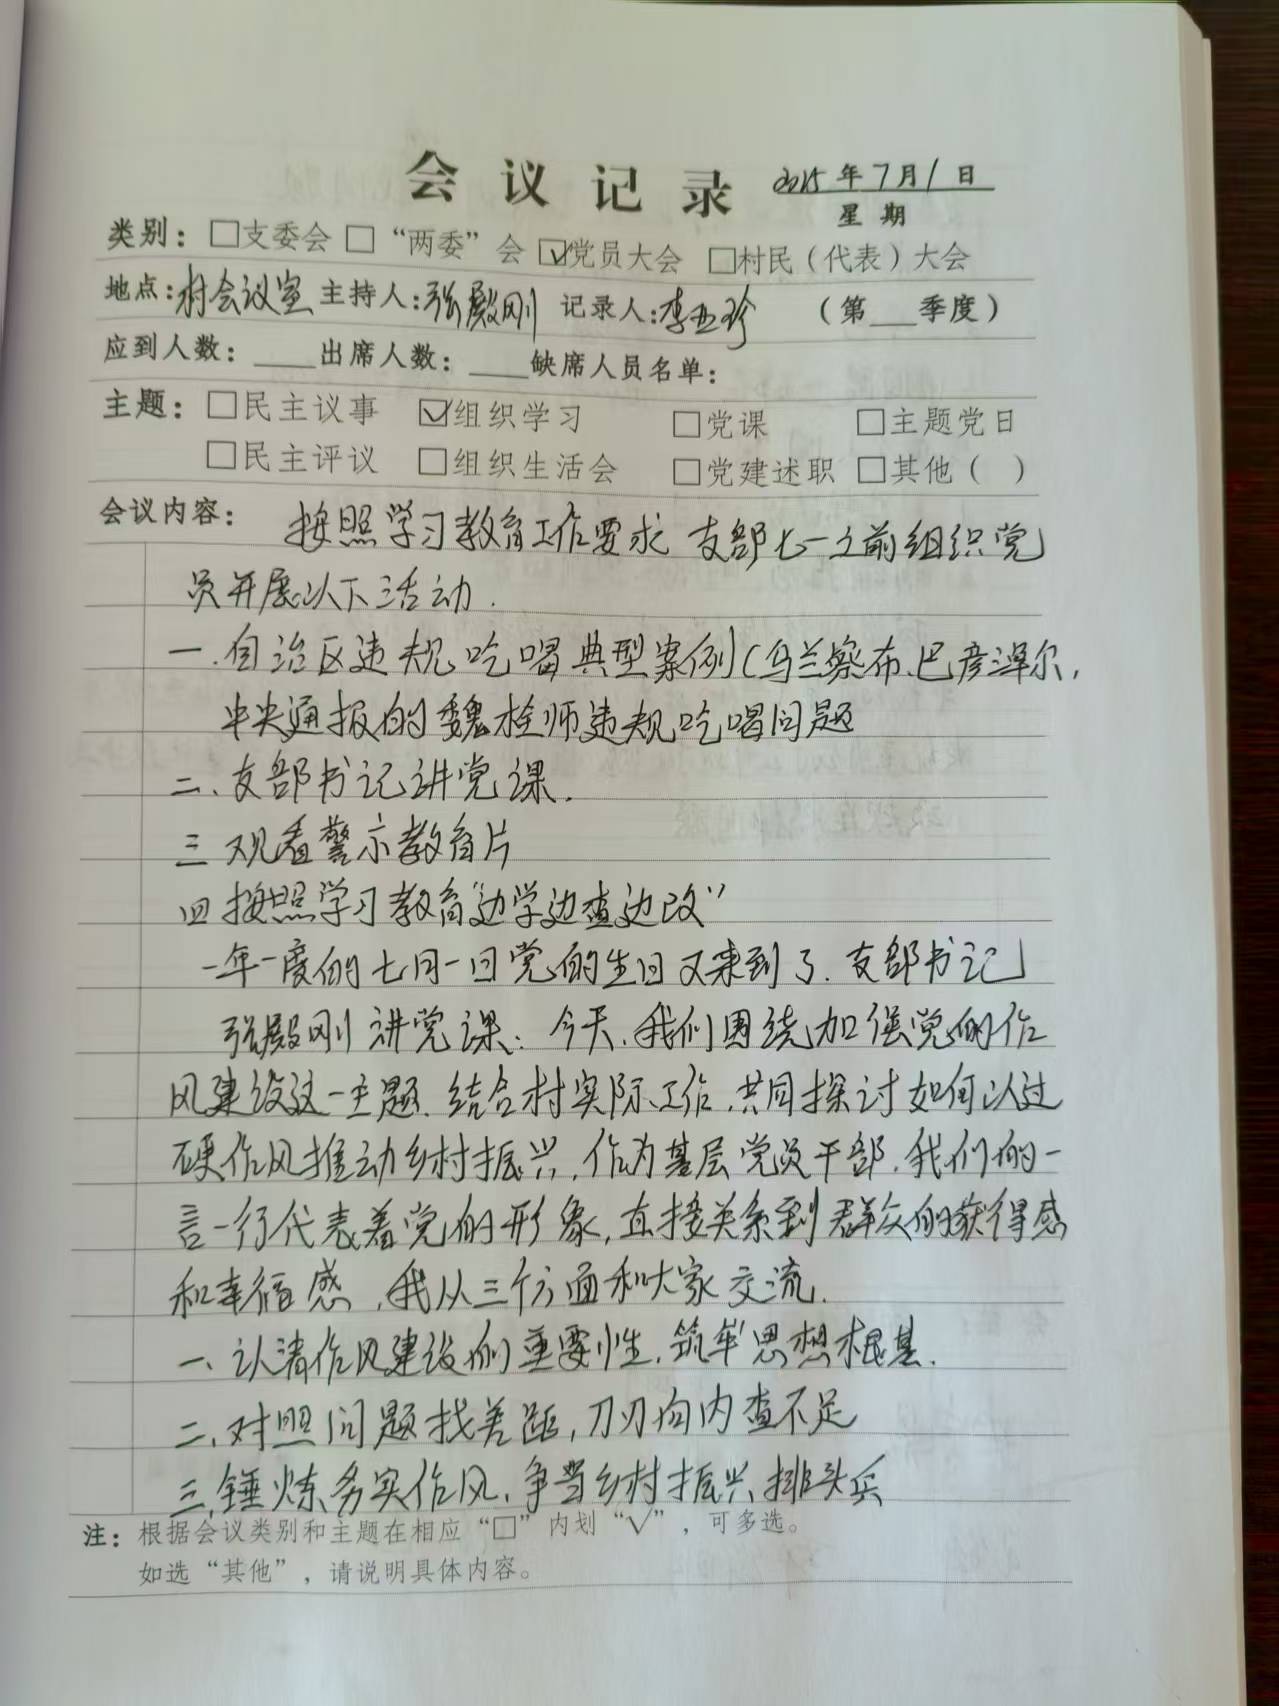 会议记录 2025年7月1日
星期
类别：□支委会 □“两委”会 ☑党员大会 □村民（代表）大会
地点：村会议室 主持人：张殿刚 记录人：李亚珍 （第___季度）
应到人数：____出席人数：____缺席人员名单：
主题：□民主议事 ☑组织学习 □党课 □主题党日
□民主评议 □组织生活会 □党建述职 □其他（ ）
会议内容： 按照学习教育工作要求 支部七一之前组织党
员开展以下活动.
一.自治区违规吃喝典型案例（乌兰察布、巴彦淖尔，
中央通报的魏栓师违规吃喝问题
二、支部书记讲党课.
三 观看警示教育片
四 按照学习教育“边学边查边改”
一年一度的七月一日党的生日又来到了.支部书记
张殿刚讲党课：今天，我们围绕加强党的作
风建设这一主题.结合村实际工作，共同探讨如何以过
硬作风推动乡村振兴，作为基层党员干部，我们的一
言一行代表着党的形象，直接关系到群众的获得感
和幸福感，我从三个方面和大家交流.
一、认清作风建设的重要性，筑牢思想根基.
二，对照问题找差距，刀刃向内查不足
三，锤炼务实作风，争当乡村振兴排头兵
注：根据会议类别和主题在相应“□”内划“√”，可多选。
如选“其他”，请说明具体内容。